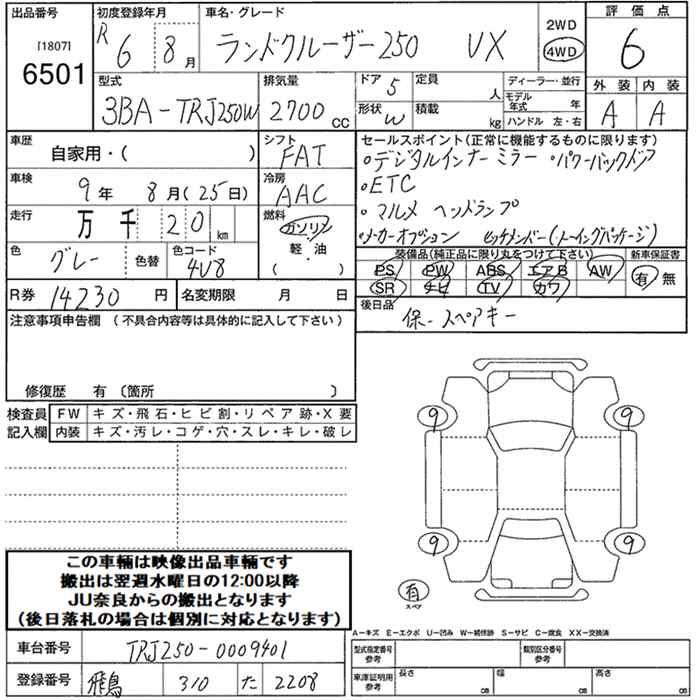 出品番号
[1807]
6501
初度登録年月
R 6 8 月
車名・グレード
ランドクルーザー250 VX
2WD
4WD
評価点
6
型式
3BA-TRJ250W
排気量
2700 cc
ドア 5
定員 人
形状 W
積載 kg
ディーラー・並行
モデル年式 年
ハンドル 左・右
外装 内装
A A
車歴
自家用・( )
シフト
FAT
車検
9年 8月(25日)
冷房
AAC
走行
万 千 20 km
燃料
ガソリン
軽・油
( )
色
グレー
色替
色コード
4V8
R券 14230 円
名変期限 月 日
セールスポイント(正常に機能するものに限ります)
・デジタルインナーミラー ・パワーバックドア
・ETC
・マルメ ヘッドランプ
・メーカーオプション ヒッチメンバー(トーイングパッケージ)
装備品(純正品に限り丸をつけて下さい)
新車保証書
PS PW ABS エアB AW
SR ナビ TV カワ
有 無
後日品
保- スペアキー
注意事項申告欄 (不具合内容等は具体的に記入して下さい)
修復歴 有 〔箇所 〕
検査員記入欄
FW キズ・飛石・ヒビ割・リペア跡・X要
内装 キズ・汚レ・コゲ・穴・スレ・キレ・破レ
9 9
9 9
有
スペア
この車輛は映像出品車輛です
搬出は翌週水曜日の12:00以降
JU奈良からの搬出となります
(後日落札の場合は個別に対応となります)
A－キズ E－エクボ U－凹み W－補修跡 S－サビ C－腐食 XX－交換済
車台番号 TRJ250-0009401
登録番号 飛鳥 310 た 2208
型式指定番号 参考
類別区分番号 参考
車庫証明用 参考
長さ cm
幅 cm
高さ cm